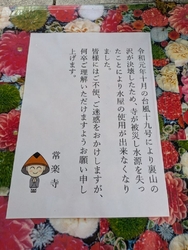 令和元年十月の台風十九号により裏山の
沢が決壊したため、寺が被災し水源を失っ
たことにより水屋の使用が出来なくなり
ました。
皆様にはご不便、ご迷惑をおかけしますが、
何卒ご理解いただけますようお願い申し
上げます。
常楽寺